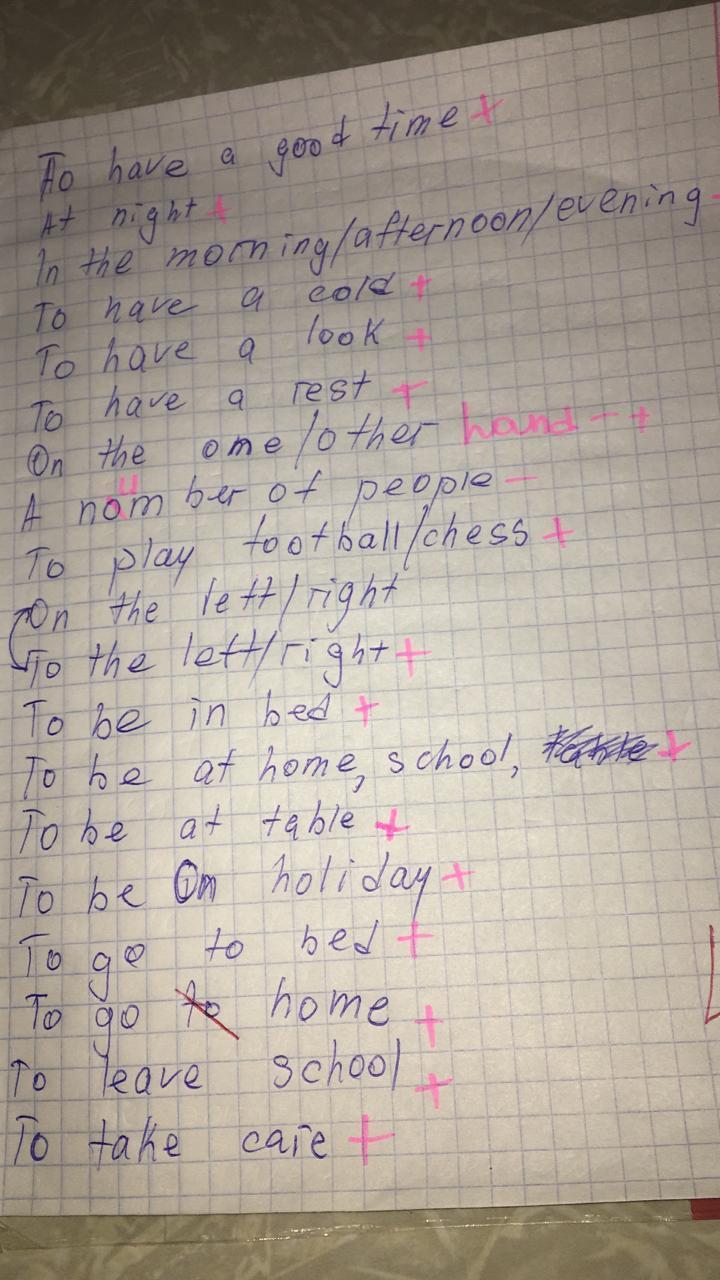 To have a good time +
At night +
In the morning/afternoon/evening -
To have a cold +
To have a look +
To have a rest +
On the ome/other hand - +
u
A nomber of people -
To play football/chess +
On the left/right
To the left/right +
To be in bed +
To be at home, school, +
To be at table +
To be On holiday +
To go to bed +
To go to home +
To leave school +
To take care +